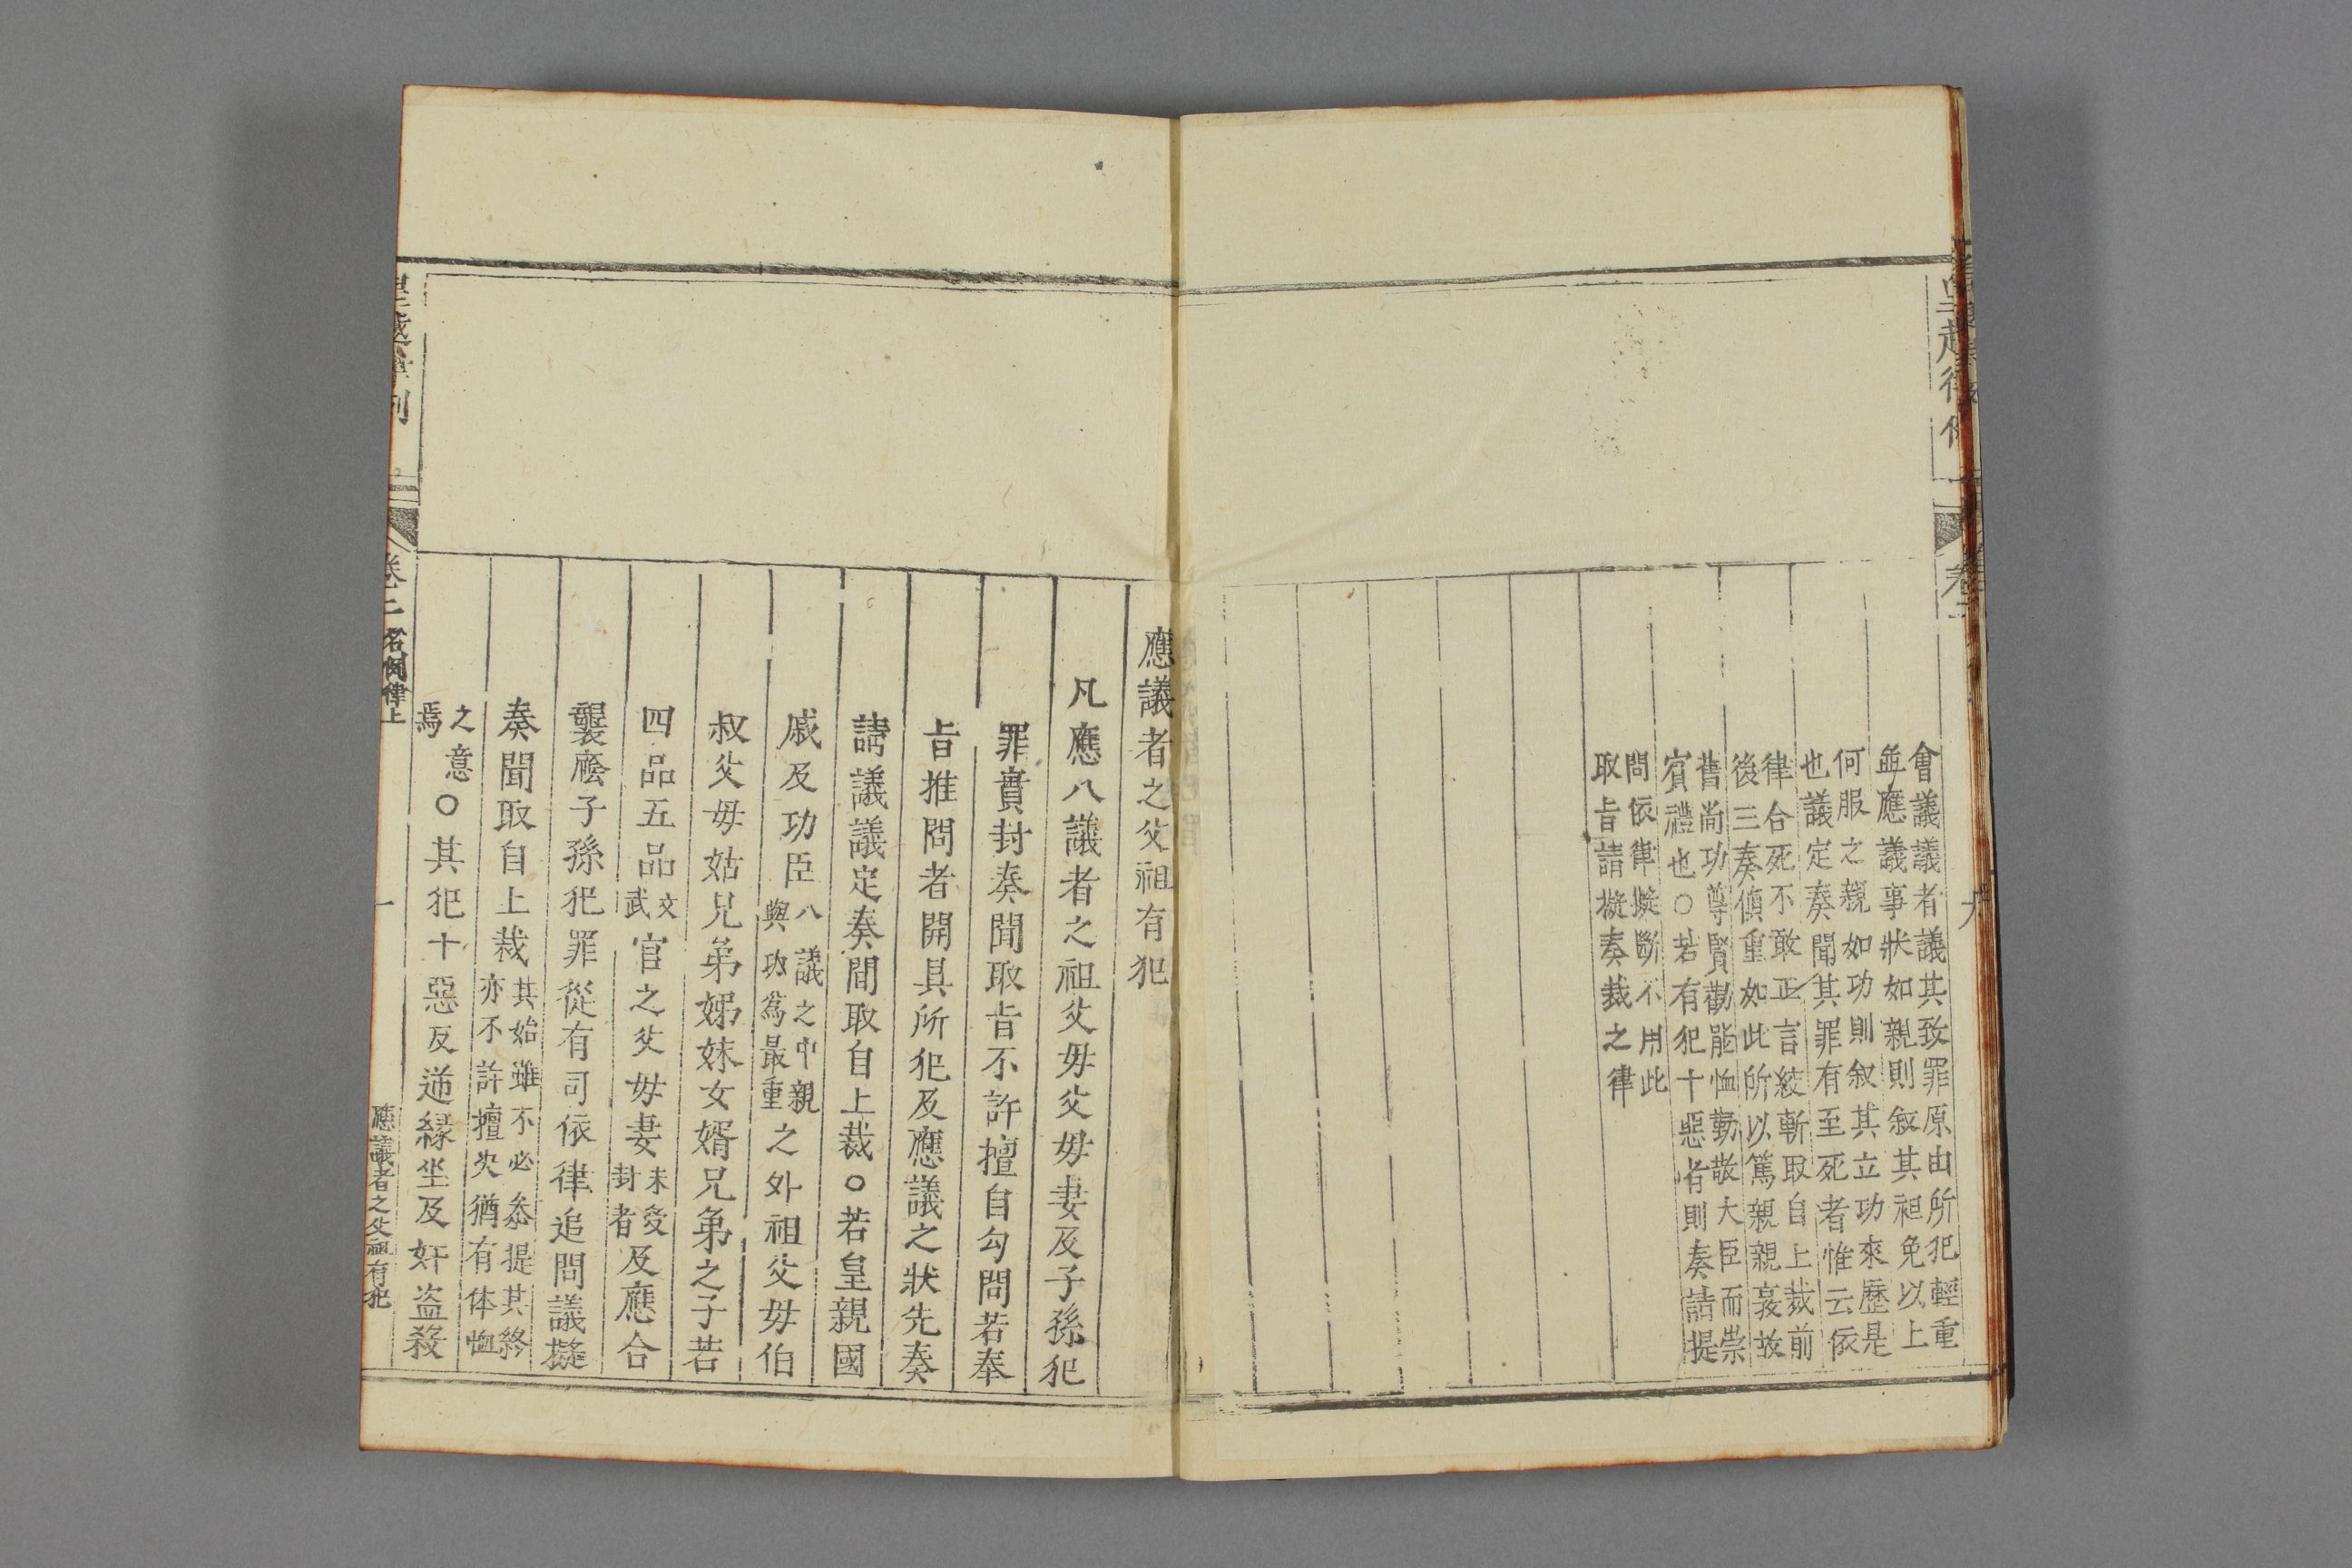 會議議者議其致罪原由所犯輕重
並應議事狀如親則叙其袒免以上
何服之親如功則叙其立功來歷是
也議定奏聞其罪有至死者惟云依
律合死不敢正言絞斬取自上裁前
後三奏慎重如此所以篤親親哀故
舊尚功尊賢勸能恤勤敬大臣而崇
賓禮也○若有犯十惡者則奏請提
問依律擬斷不用此
取旨請擬奏裁之律
應議者之父祖有犯
凡應八議者之祖父母父母妻及子孫犯
罪實封奏聞取旨不許擅自勾問若奉
旨推問者開具所犯及應議之狀先奏
請議議定奏聞取自上裁○若皇親國
戚及功臣八議之中親與功爲最重之外祖父母伯
叔父母姑兄弟姊妹女婿兄弟之子若
四品五品文武官之父母妻未受封者及應合
襲廕子孫犯罪從有司依律追問議擬
奏聞取自上裁其始雖不必叅提其終亦不許擅决猶有体恤
之意焉○其犯十惡反逆緣坐及奸盗殺
皇越律例
卷二
名例律上
一
應議者之父祖有犯